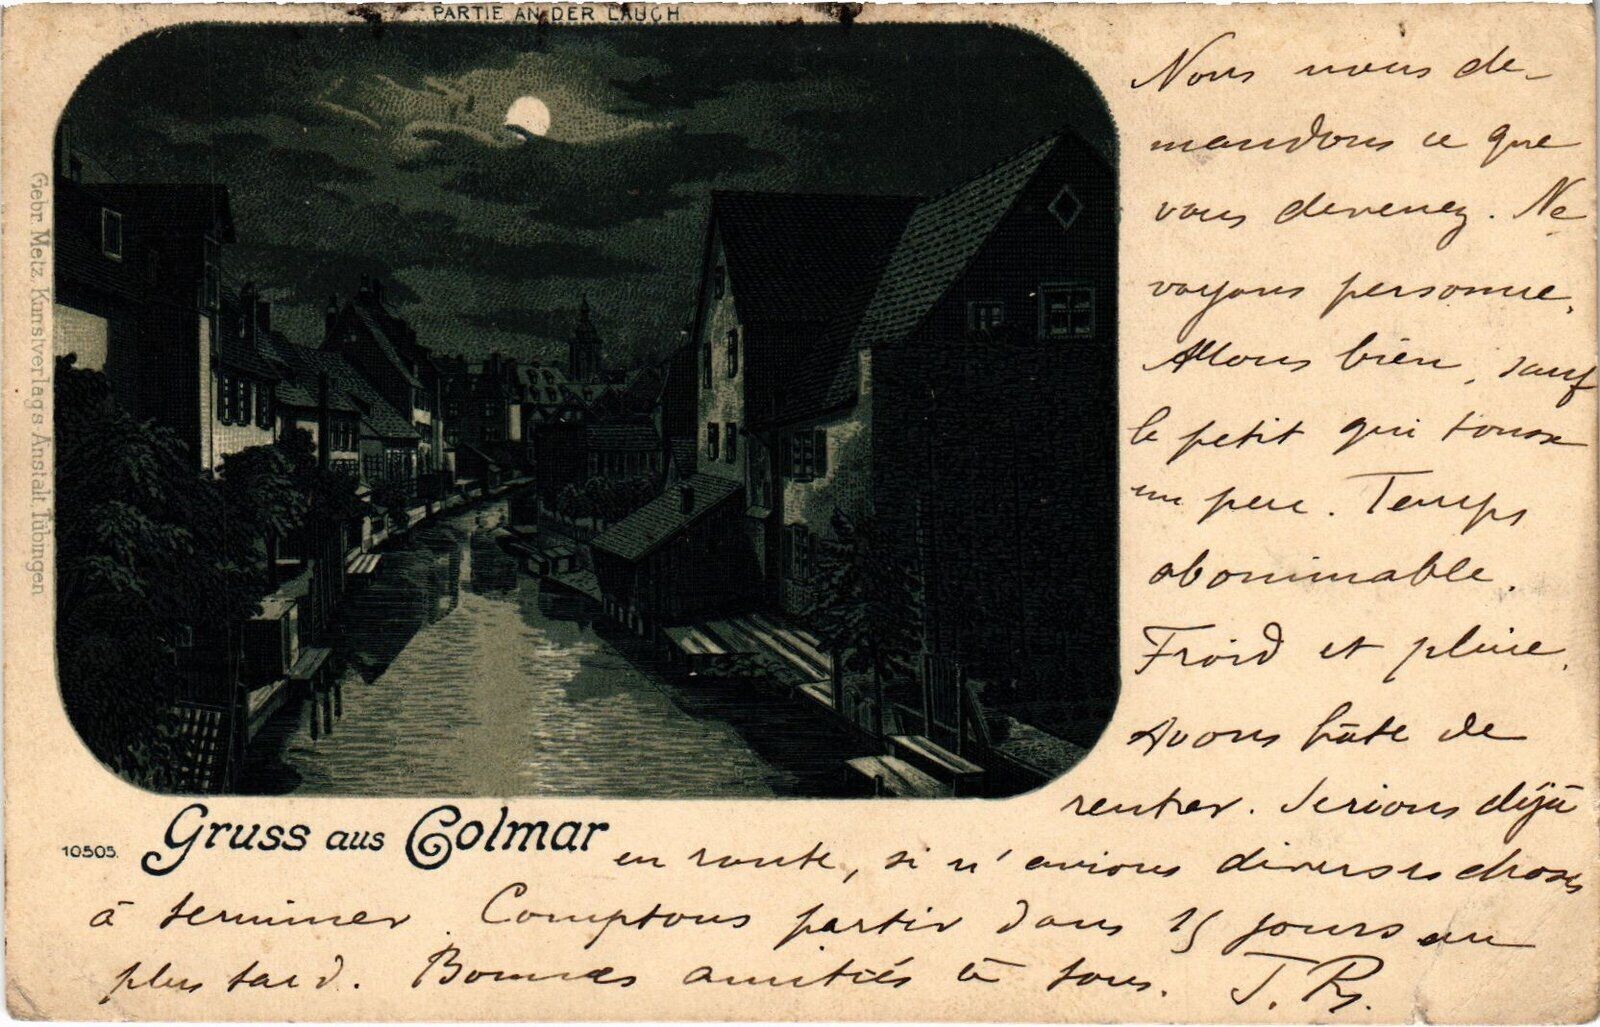 PARTIE AN DER LAUCH
Nous nous de-
mandons ce que
vous devenez. Ne
voyons personne.
Allons bien, sauf
le petit qui tousse
un peu. Temps
abominable.
Froid et pluie.
Avons hâte de
rentrer. Serions déjà
en route, si n'avions diverses choses
à terminer. Comptons partir dans 15 jours au
plus tard. Bonnes amitiés à tous. J. Ry.
Gruss aus Colmar
10505.
Gebr. Metz, Kunstverlags-Anstalt, Tübingen